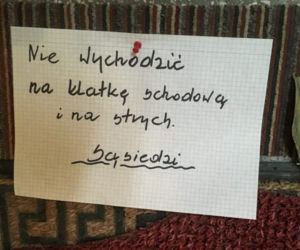 Nie wychodzić
na klatkę schodową
i na strych.
Sąsiedzi